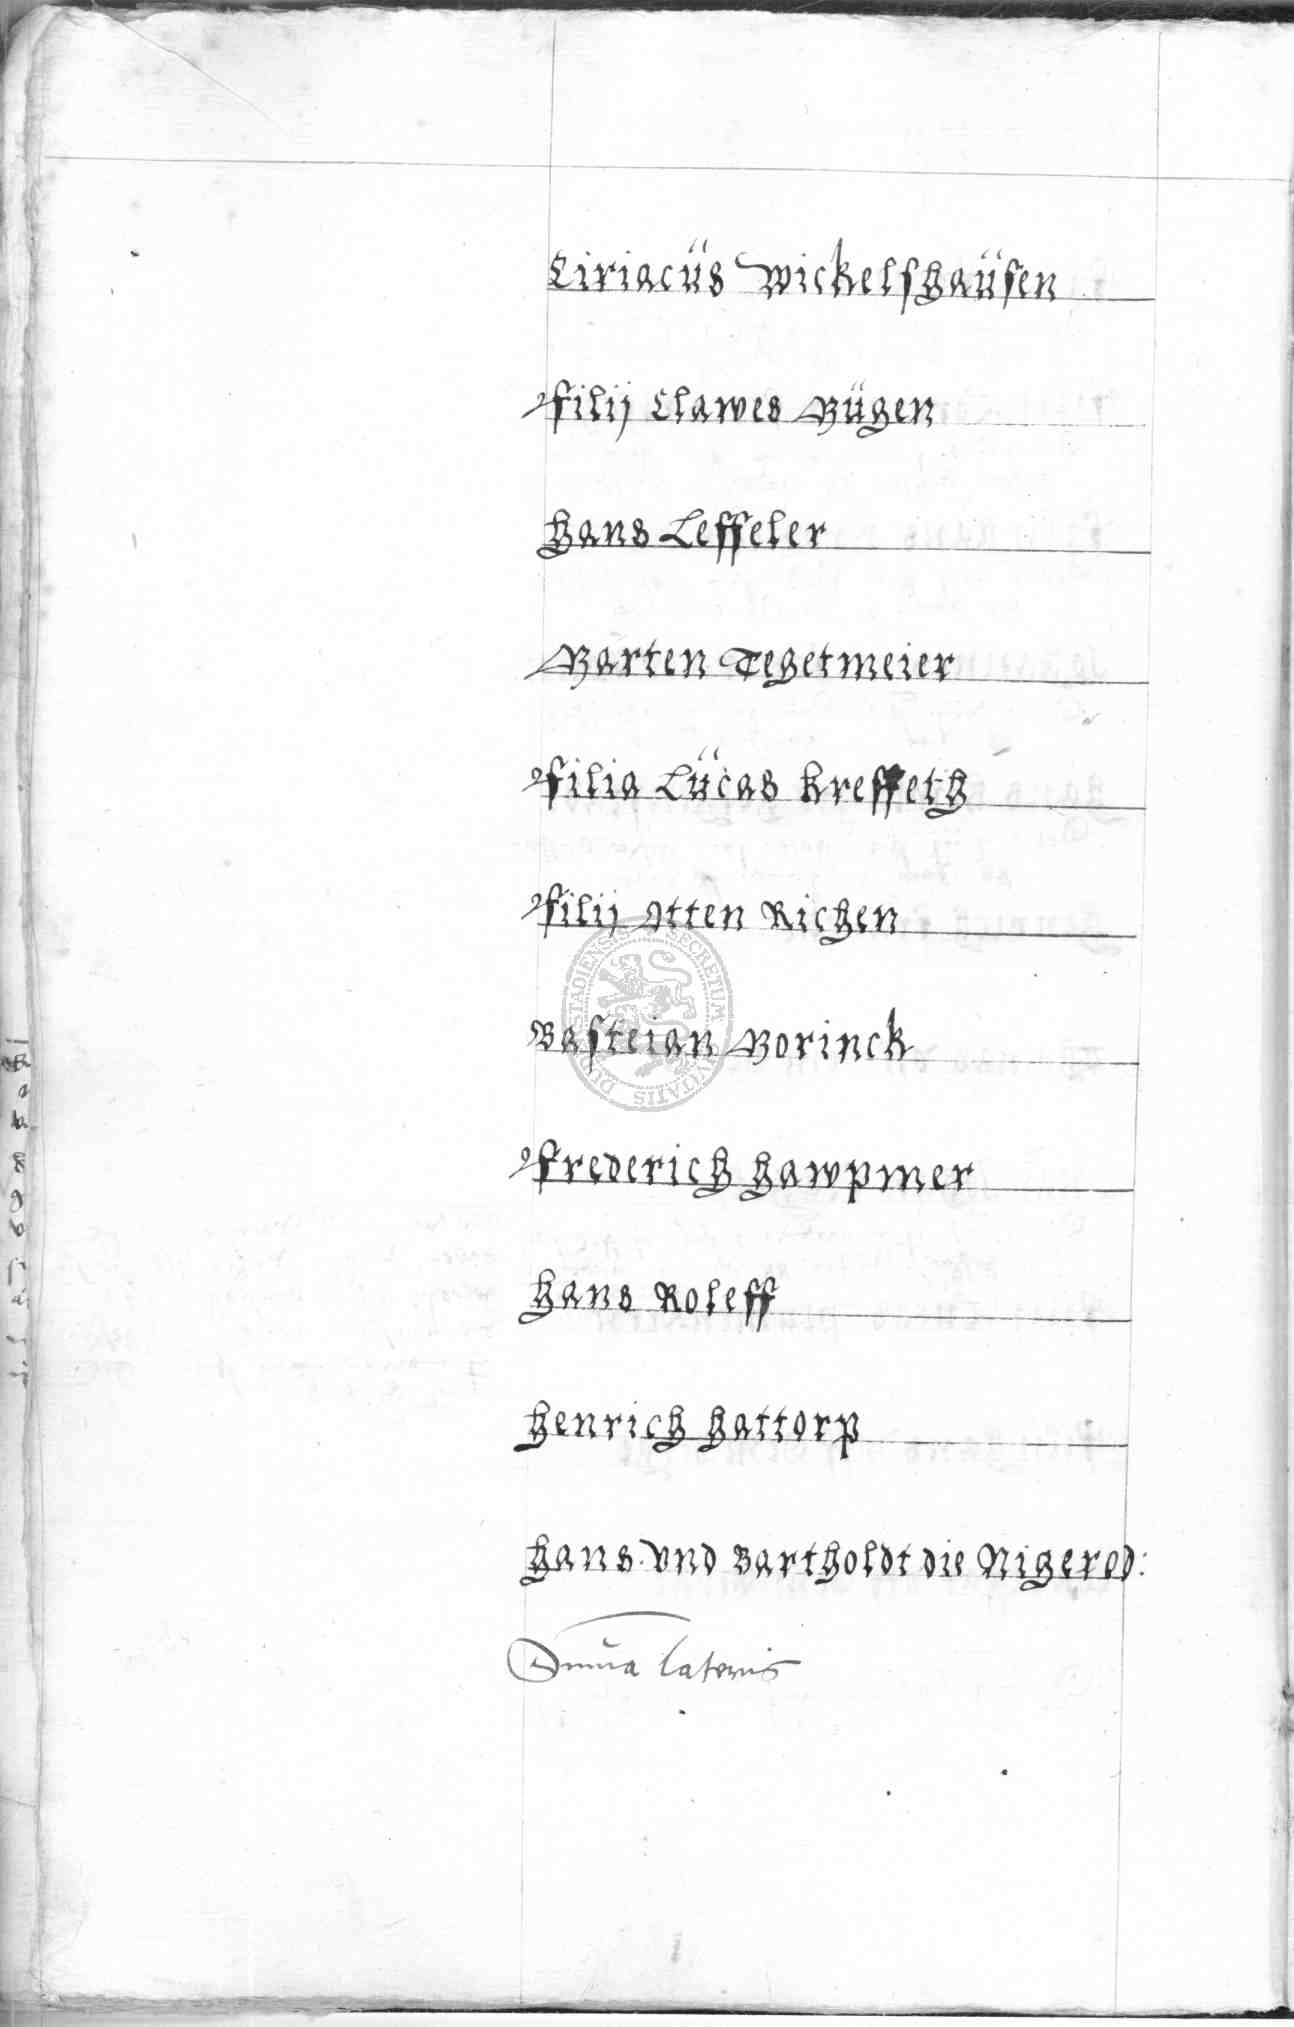 Ciriacüs Wickelshaüsen
filij Clawes Bügen
Hans Leffeler
Barten Tegetmeier
filia Lücas Kreffeth
filij Otten Richen
Basteian Borinck
Frederich Hawpmer
Hans Roleff
Henrich Hattorp
Hans vnd Bartholdt die Nigerod:
Suma lateris